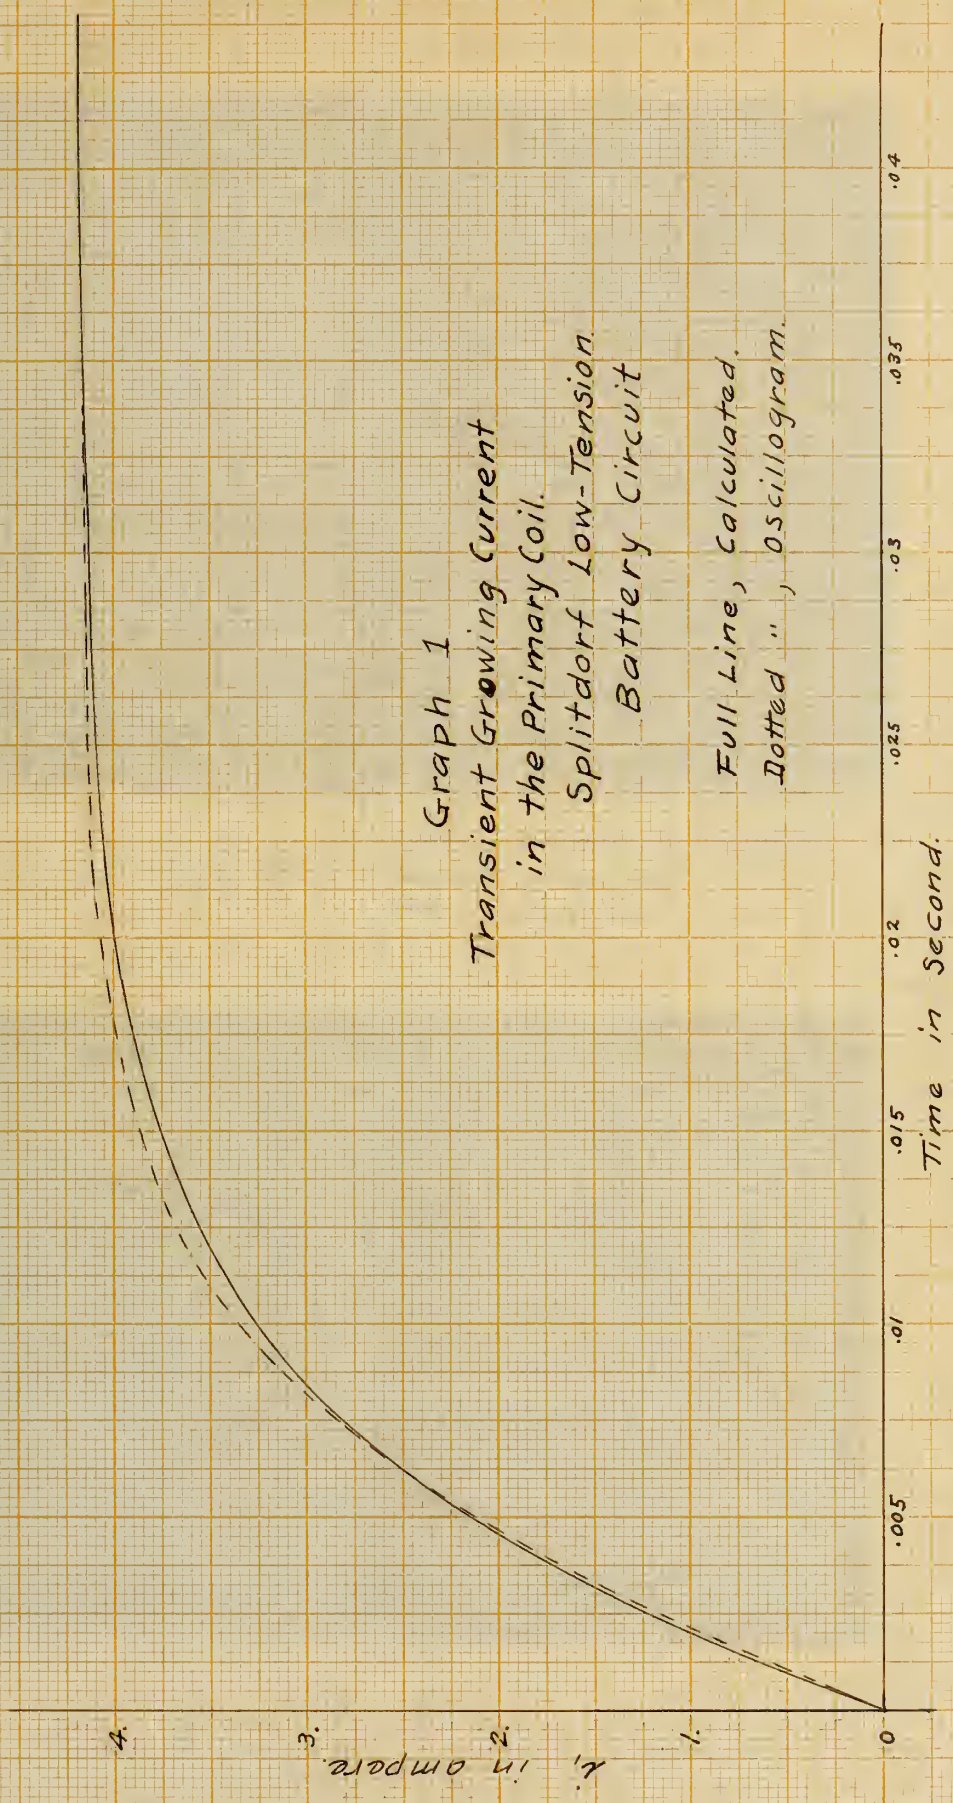 Graph 1
Transient Growing Current
in the Primary Coil.
Splitdorf Low-Tension.
Battery Circuit
Full Line, Calculated.
Dotted " , Oscillogram.
4.
3.
2.
1.
0
i₁ in ampere.
.005
.01
.015
.02
.025
.03
.035
.04
Time in Second.